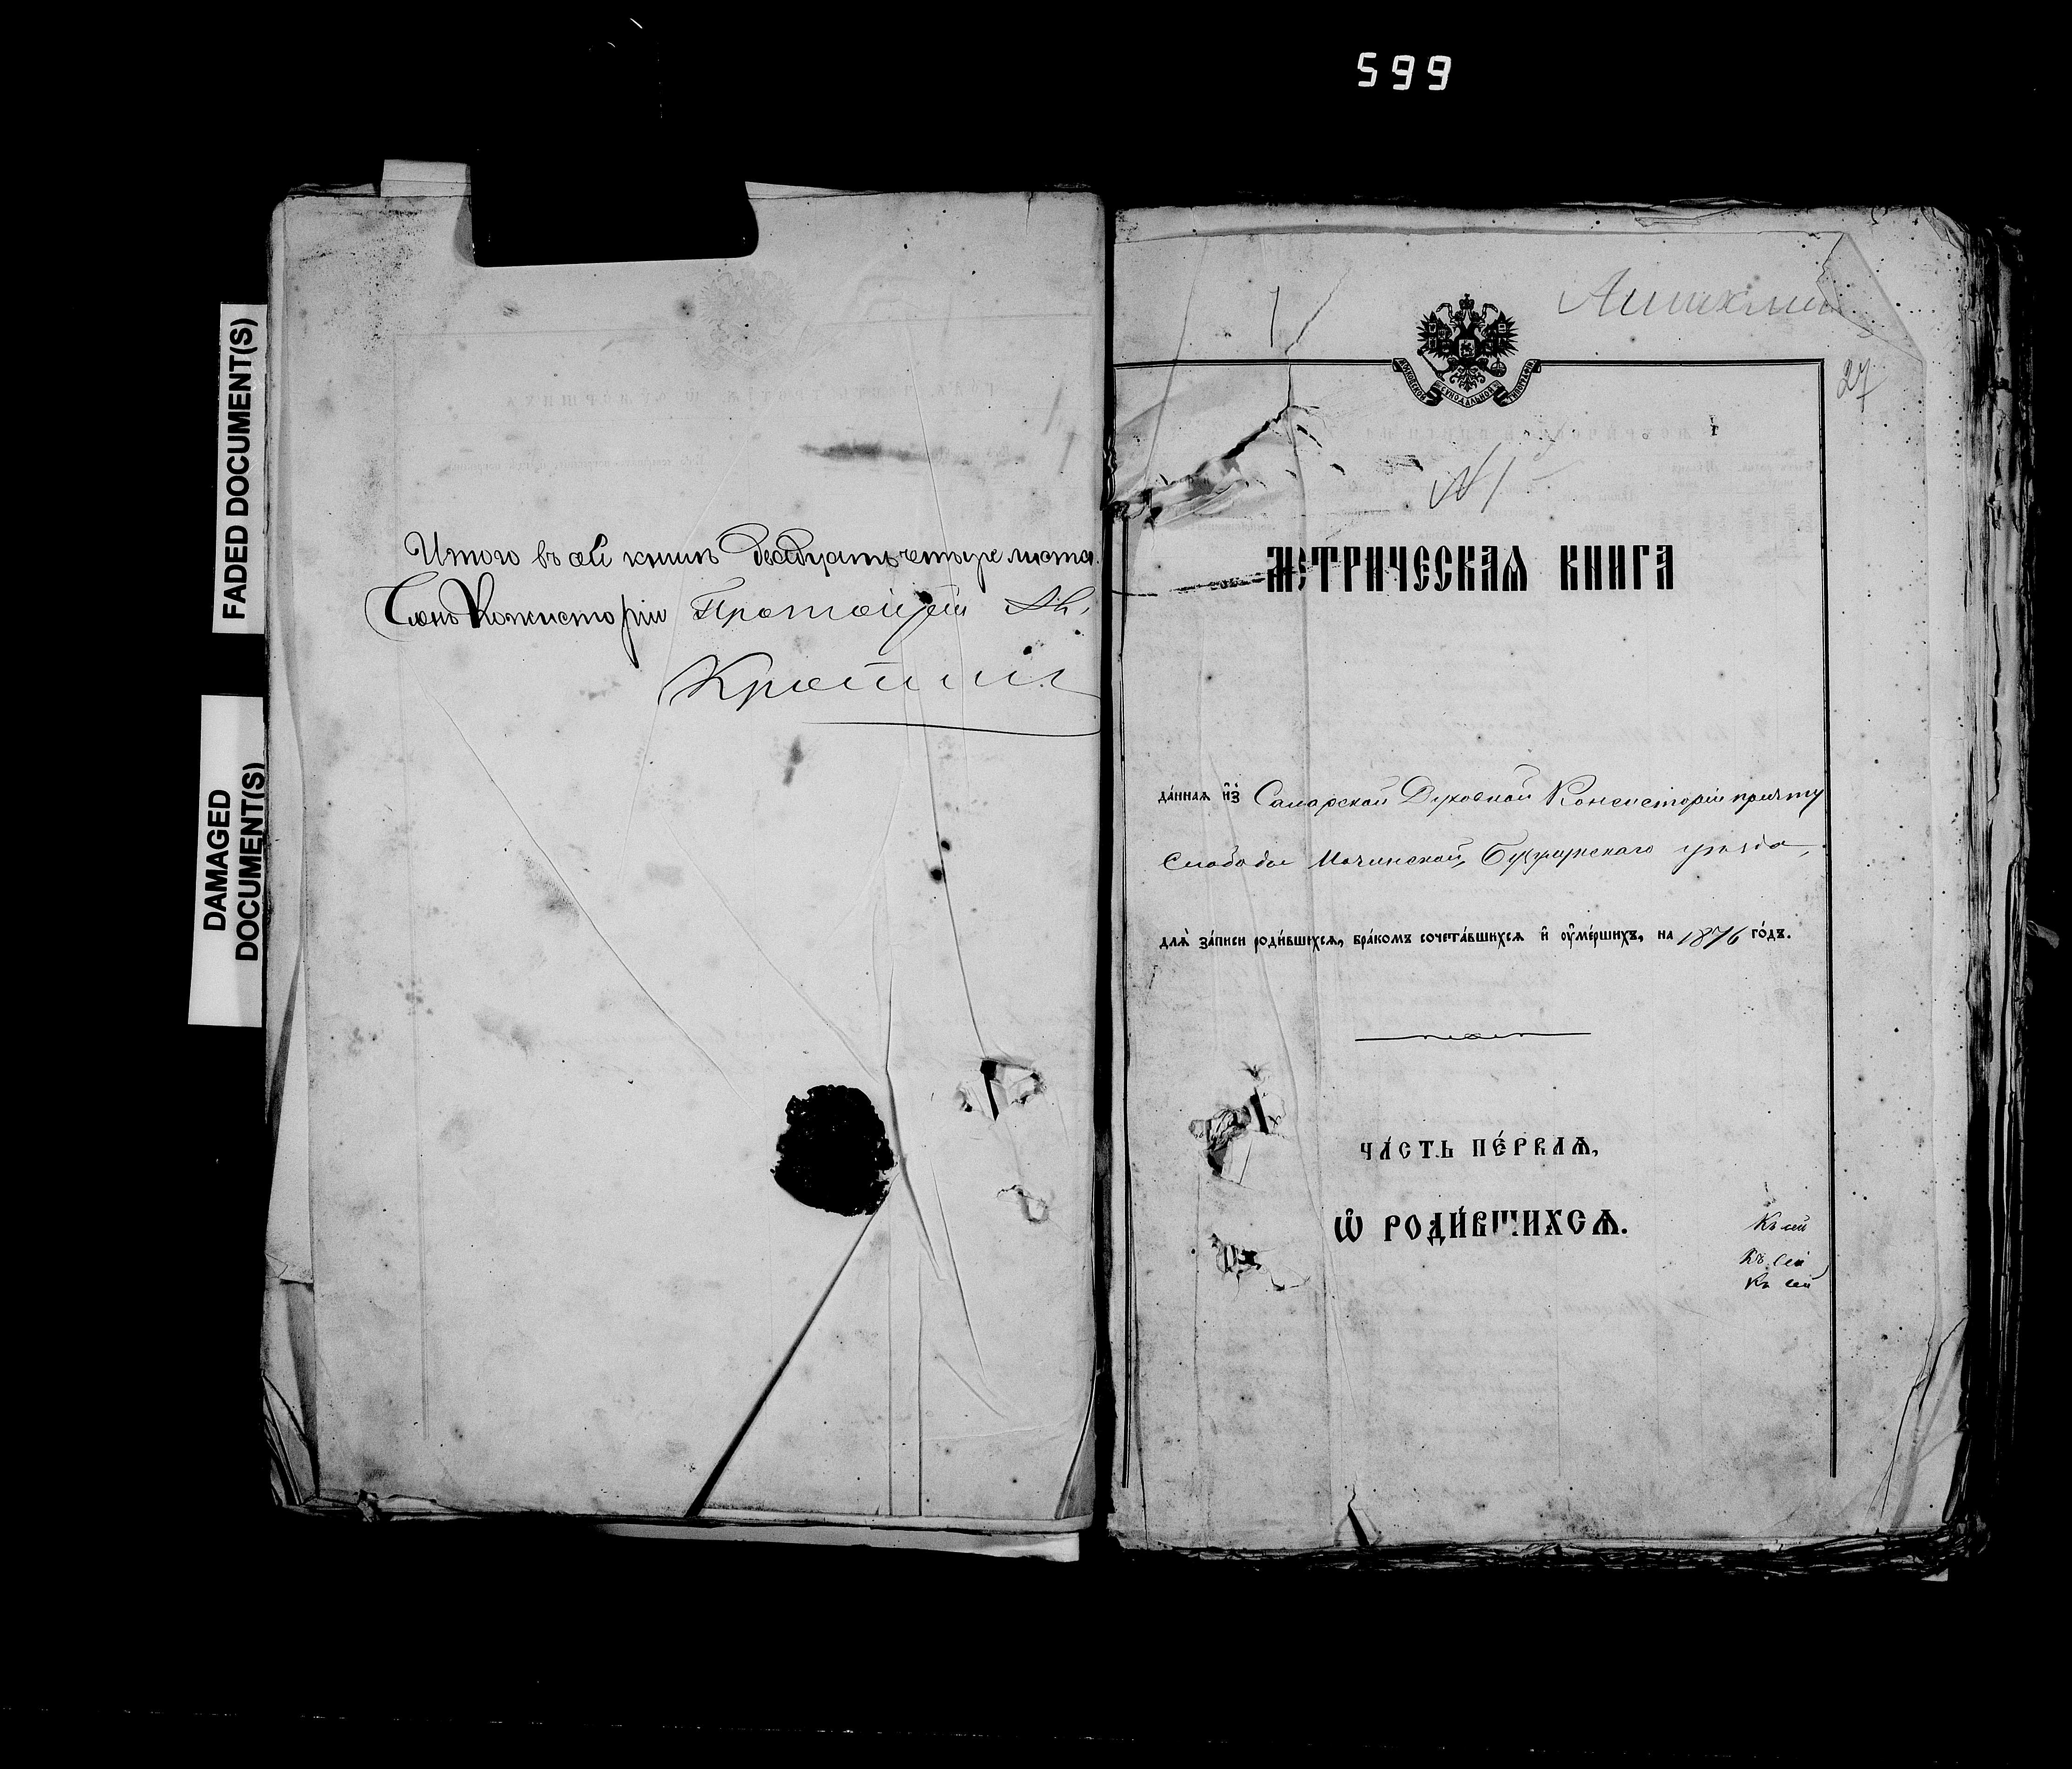 599
FADED DOCUMENT(S)
DAMAGED
DOCUMENT(S)
Итого въ сей книгѣ двадцать четыре листа.
Членъ Консисторіи Протоіерей
27
МОСКОВСКОЙ СѴНОДАЛЬНОЙ ТИПОГРАФІИ
№ 1
МЕТРИЧЕСКАѦ КНИГА
да́ннаѧ и҆з̾ Самарской Духовной Консисторіи причту
Слободы Мочинской, Бузулукскаго уѣзда,
длѧ̀ за́писи роди́вшихсѧ, бра́комъ сочета́вшихсѧ и҆ ᲂу҆ме́ршихъ, на 1876 го́дъ.
ЧА́СТЬ ПЕ́РВАѦ,
Ѡ҆ РОДИ́ВШИХСѦ.
Къ сей
Къ сей
Къ сей